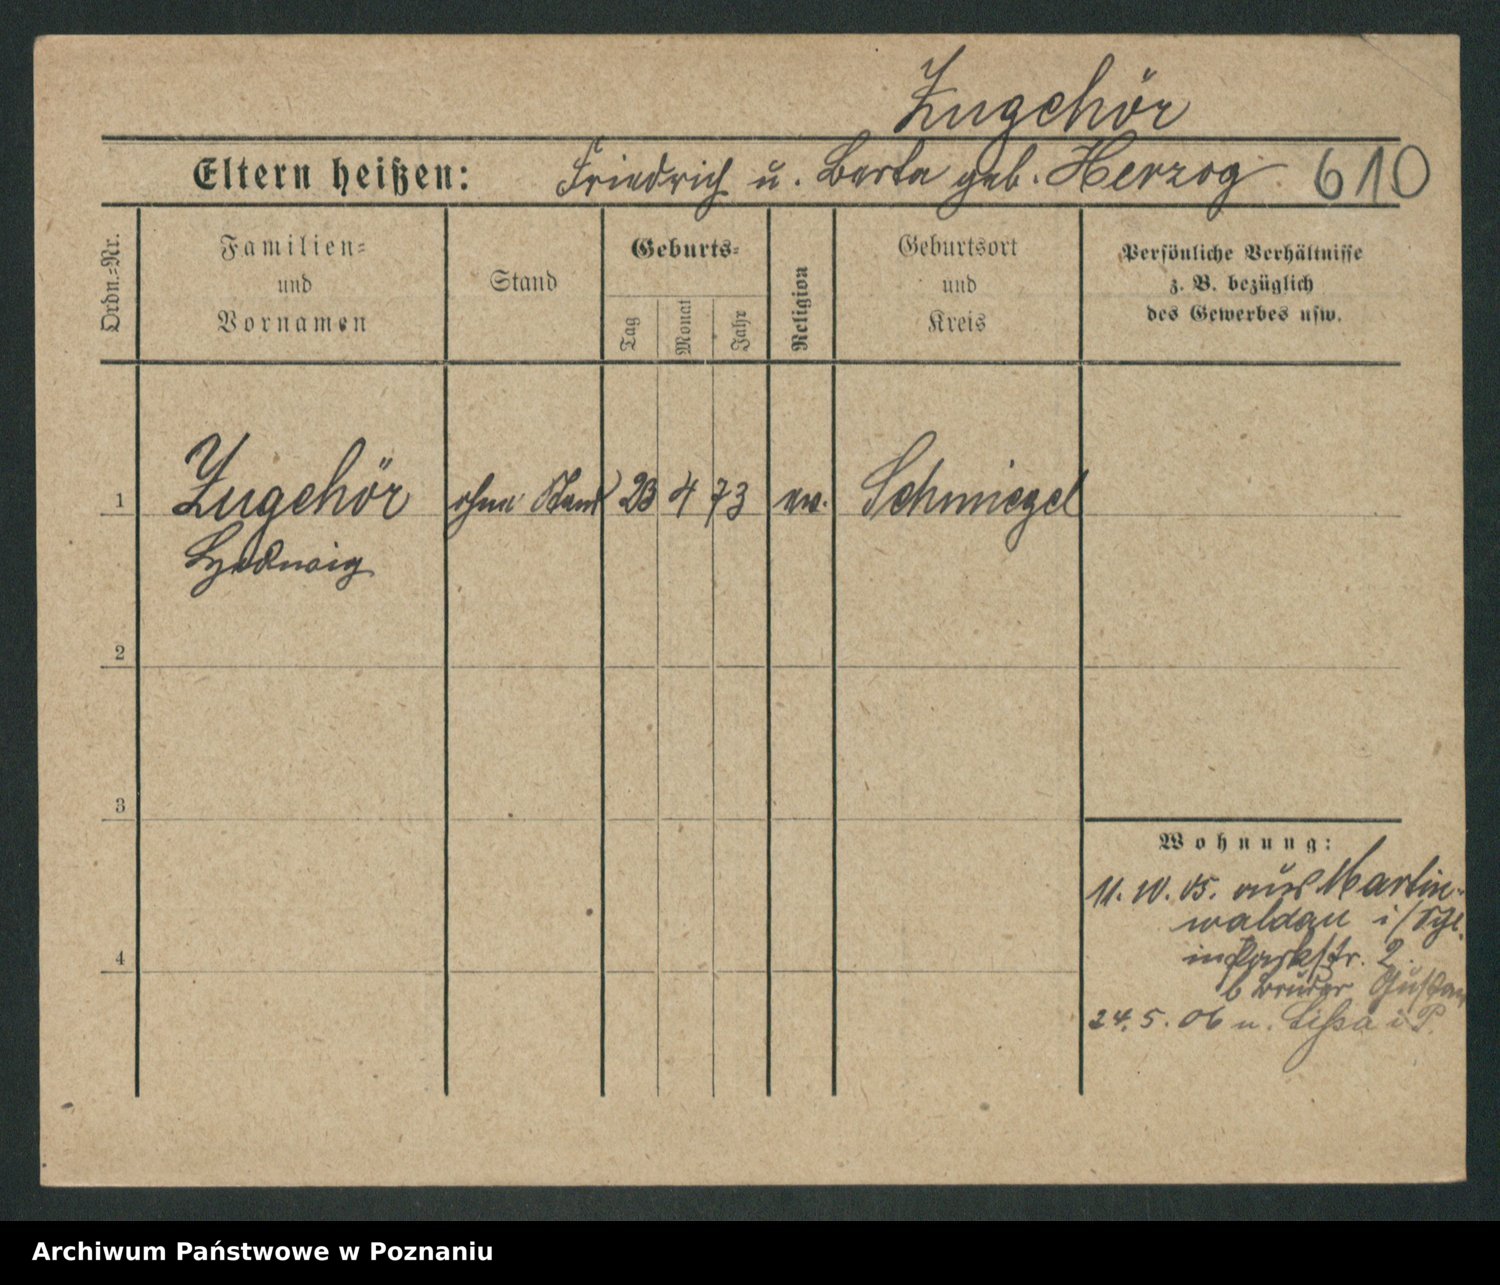 Zugehör
Eltern heißen: Friedrich u. Berta geb. Herzog 610
Ordn.=Nr.
Familien=
und
Vornamen
Stand
Geburts=
Tag
Monat
Jahr
Religion
Geburtsort
und
Kreis
Persönliche Verhältnisse
z. B. bezüglich
des Gewerbes usw.
1 Zugehör ohne Stand 23 4 73 ev. Schmiegel
Hedwig
2
3
4
Wohnung:
11. 10. 05. aus Martin-
waldau i/Schl.
in Parkstr. 2.
b Bruder Gustav
24. 5. 06 n. Lissa i P.
Archiwum Państwowe w Poznaniu